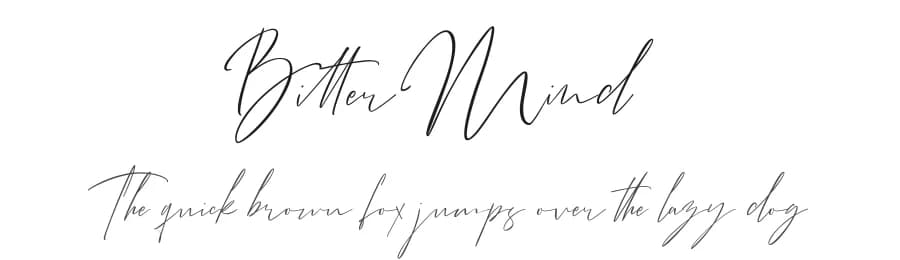 Bitter Mind
The quick brown fox jumps over the lazy dog